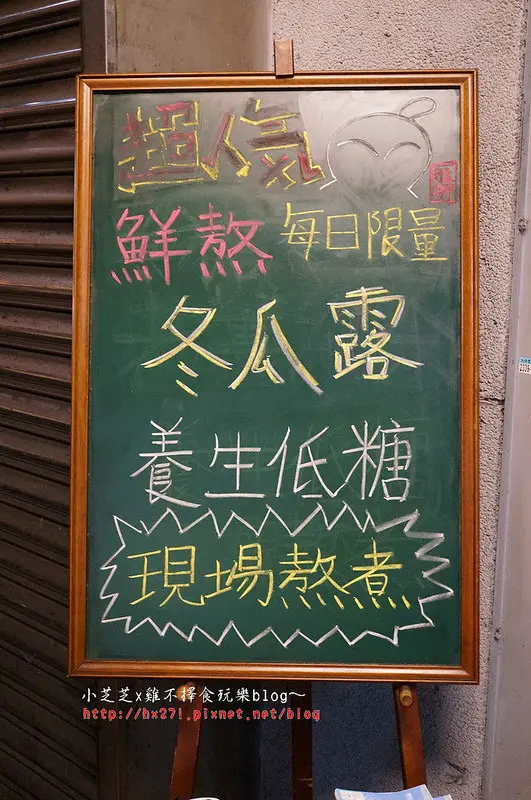 超人氣
鮮熬 每日限量
冬瓜露
養生低糖
現場熬煮
小芝芝x雞不擇食玩樂blog～
http://hx27!.pixnet.net/blog